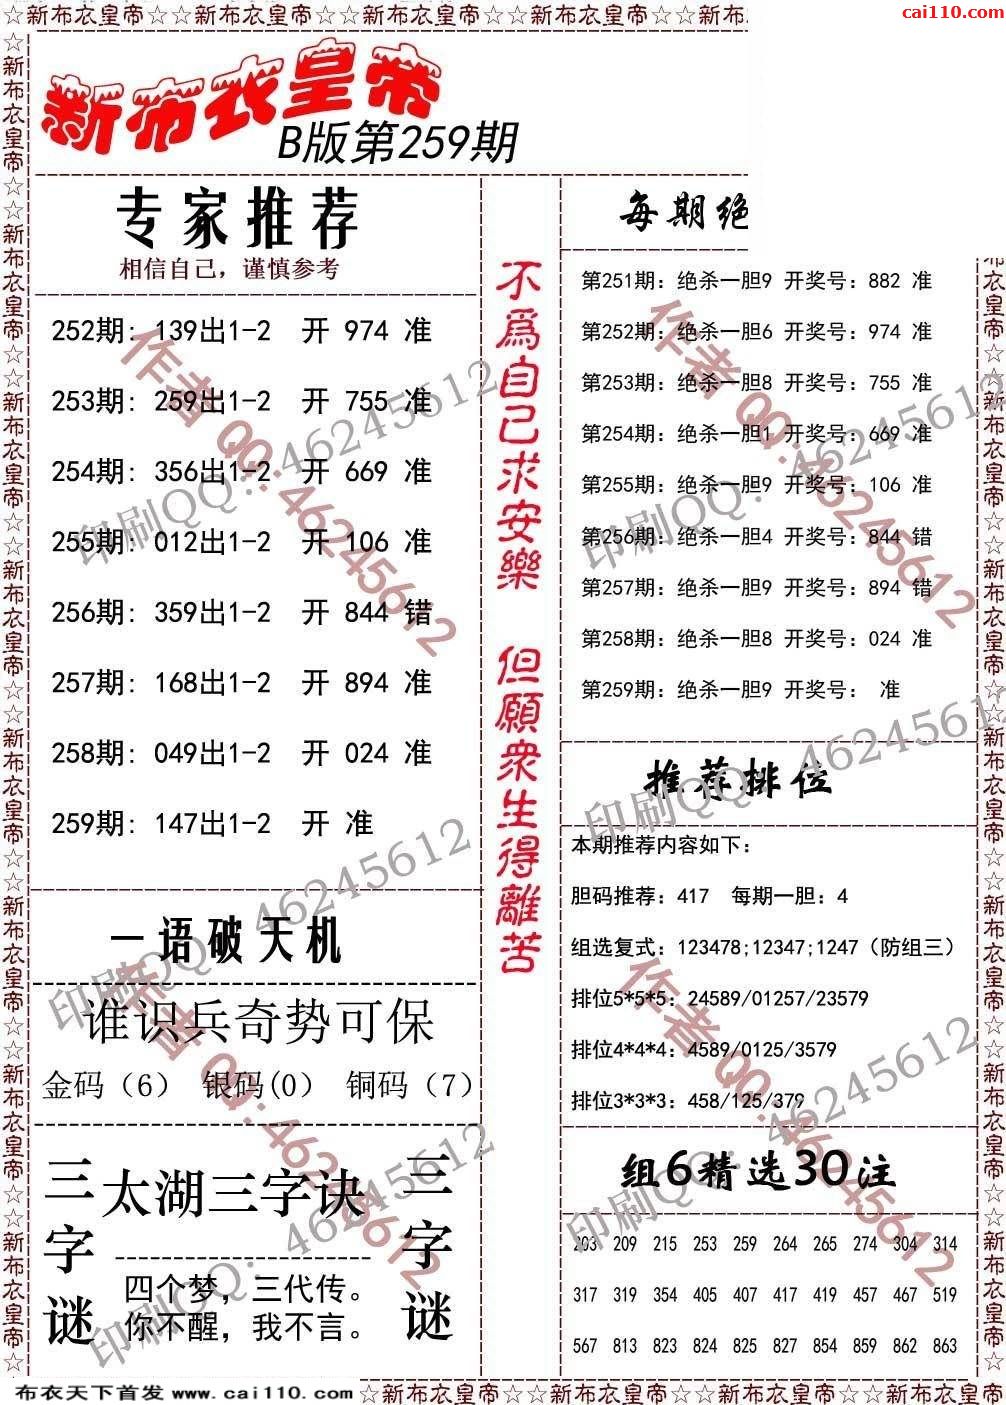 ☆新布衣皇帝☆☆新布衣皇帝☆☆新布衣皇帝☆☆新布衣皇帝☆☆新布
cai110.com
新布衣皇帝
B版第259期
专家推荐
相信自己，谨慎参考
252期: 139出1-2 开 974 准
253期: 259出1-2 开 755 准
254期: 356出1-2 开 669 准
255期: 012出1-2 开 106 准
256期: 359出1-2 开 844 错
257期: 168出1-2 开 894 准
258期: 049出1-2 开 024 准
259期: 147出1-2 开 准
一语破天机
谁识兵奇势可保
金码（6） 银码(0） 铜码（7）
三字谜
太湖三字诀
四个梦，三代传。
你不醒，我不言。
三字谜
不為自己求安樂
但願衆生得離苦
每期绝
第251期：绝杀一胆9 开奖号：882 准
第252期：绝杀一胆6 开奖号：974 准
第253期：绝杀一胆8 开奖号：755 准
第254期：绝杀一胆1 开奖号：669 准
第255期：绝杀一胆9 开奖号：106 准
第256期：绝杀一胆4 开奖号：844 错
第257期：绝杀一胆9 开奖号：894 错
第258期：绝杀一胆8 开奖号：024 准
第259期：绝杀一胆9 开奖号： 准
推荐排位
本期推荐内容如下：
胆码推荐：417 每期一胆：4
组选复式：123478;12347;1247（防组三）
排位5*5*5：24589/01257/23579
排位4*4*4：4589/0125/3579
排位3*3*3：458/125/379
组6精选30注
203 209 215 253 259 264 265 274 304 314
317 319 354 405 407 417 419 457 467 519
567 813 823 824 825 827 854 859 862 863
作者 QQ:46245612
印刷QQ：46245612
作者 QQ:46245612
印刷QQ：46245612
印刷QQ：46245612
印刷QQ：46245612
作者 QQ:46245612
印刷QQ：46245612
作者 QQ:46245612
印刷QQ：46245612
布衣天下首发 www.cai110.com
☆新布衣皇帝☆☆新布衣皇帝☆☆新布衣皇帝☆☆新布衣皇帝☆